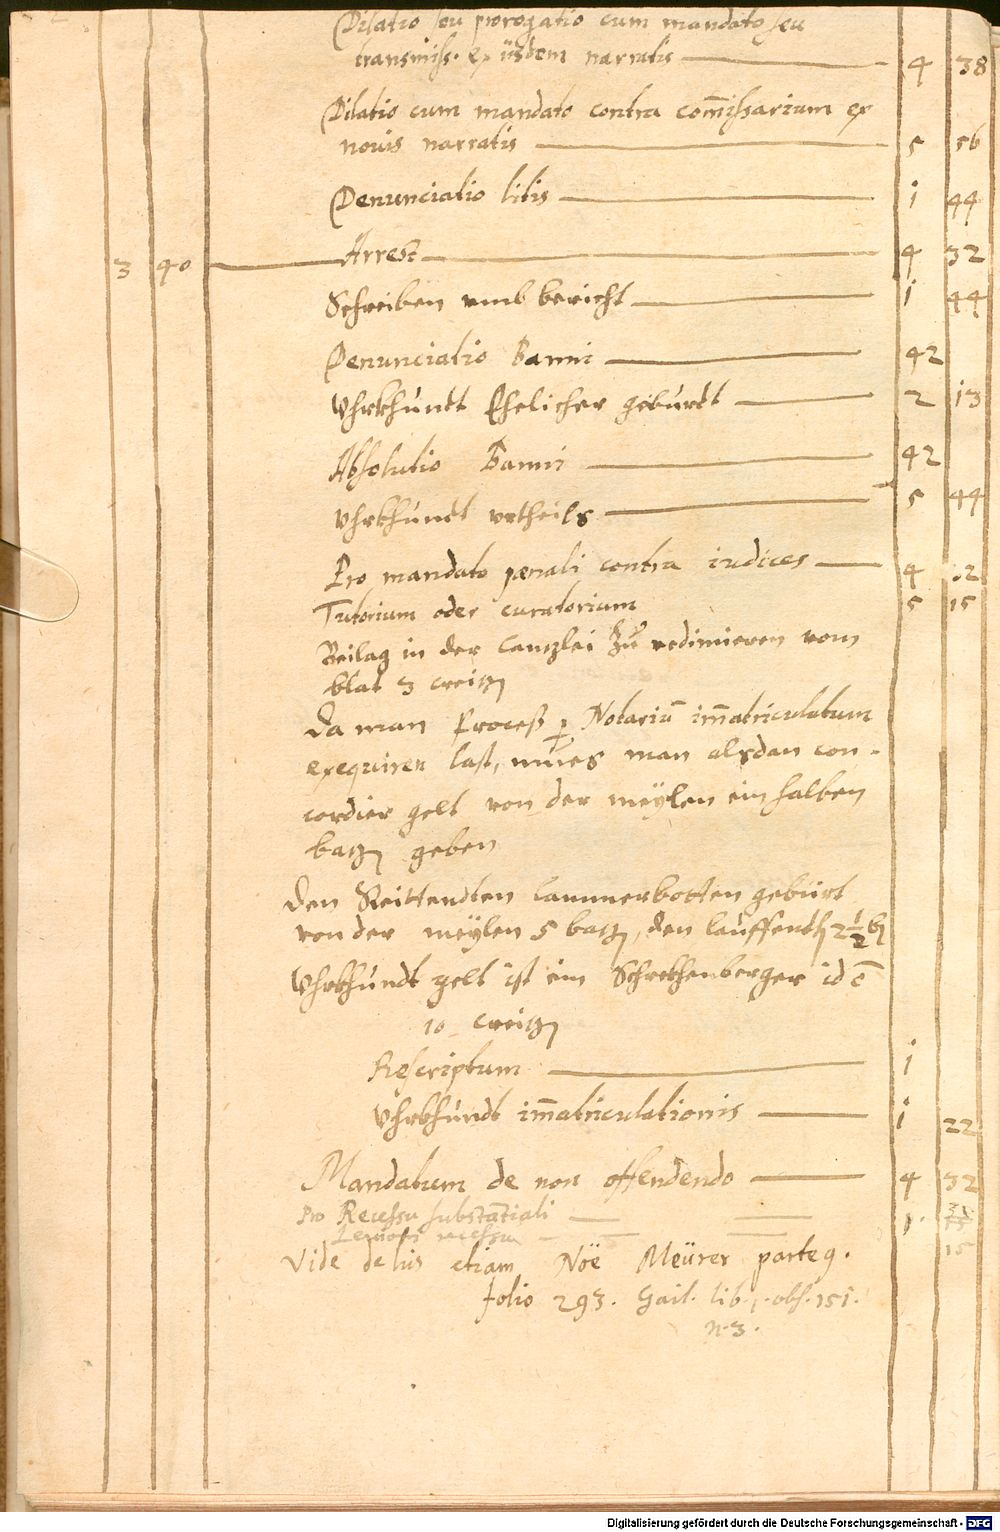 Dilatio seu prorogatio cum mandato seu
transmiss. ex iisdem narratis 4 38
Dilatio cum mandato contra com̄issarium ex
nouis narratis 5 56
Denunciatio litis i 44
3 40 Arrest 4 32
Schreiben vmb bericht i 44
Denunciatio Banni 42
Vhrkhundt Ehelicher geburdt 2 13
Absolutio Banni 42
Vhrkhundt vrtheils 5 44
Pro mandato pœnali contra iudices 4 32
Tutorium oder curatorium 5 15
Beilag in der Canzlei zu redimieren vom
blat 3 creitz
Da man Proceß Notariū im̄atriculatum
exequiren last, mues man alsdan con-
cordier gelt von der meÿlen ein halben
batz geben
Den Reittendten Cammerbotten gebürt
von der meÿlen 5 batz, den lauffendt 2 1/2 b
Vhrkhundt gelt ist ein Schrekhenberger id ē
10 creitz
Rescriptum i
Vhrkhundt im̄atriculationis i 22
Mandatum de non offendendo 4 32
Pro Recessu substātiali 1
recessu 15
Vide de his etiam Nöe Meürer parte 9.
folio 293. Gail. lib. 1. obs. 151.
n. 3.
Digitalisierung gefördert durch die Deutsche Forschungsgemeinschaft - DFG